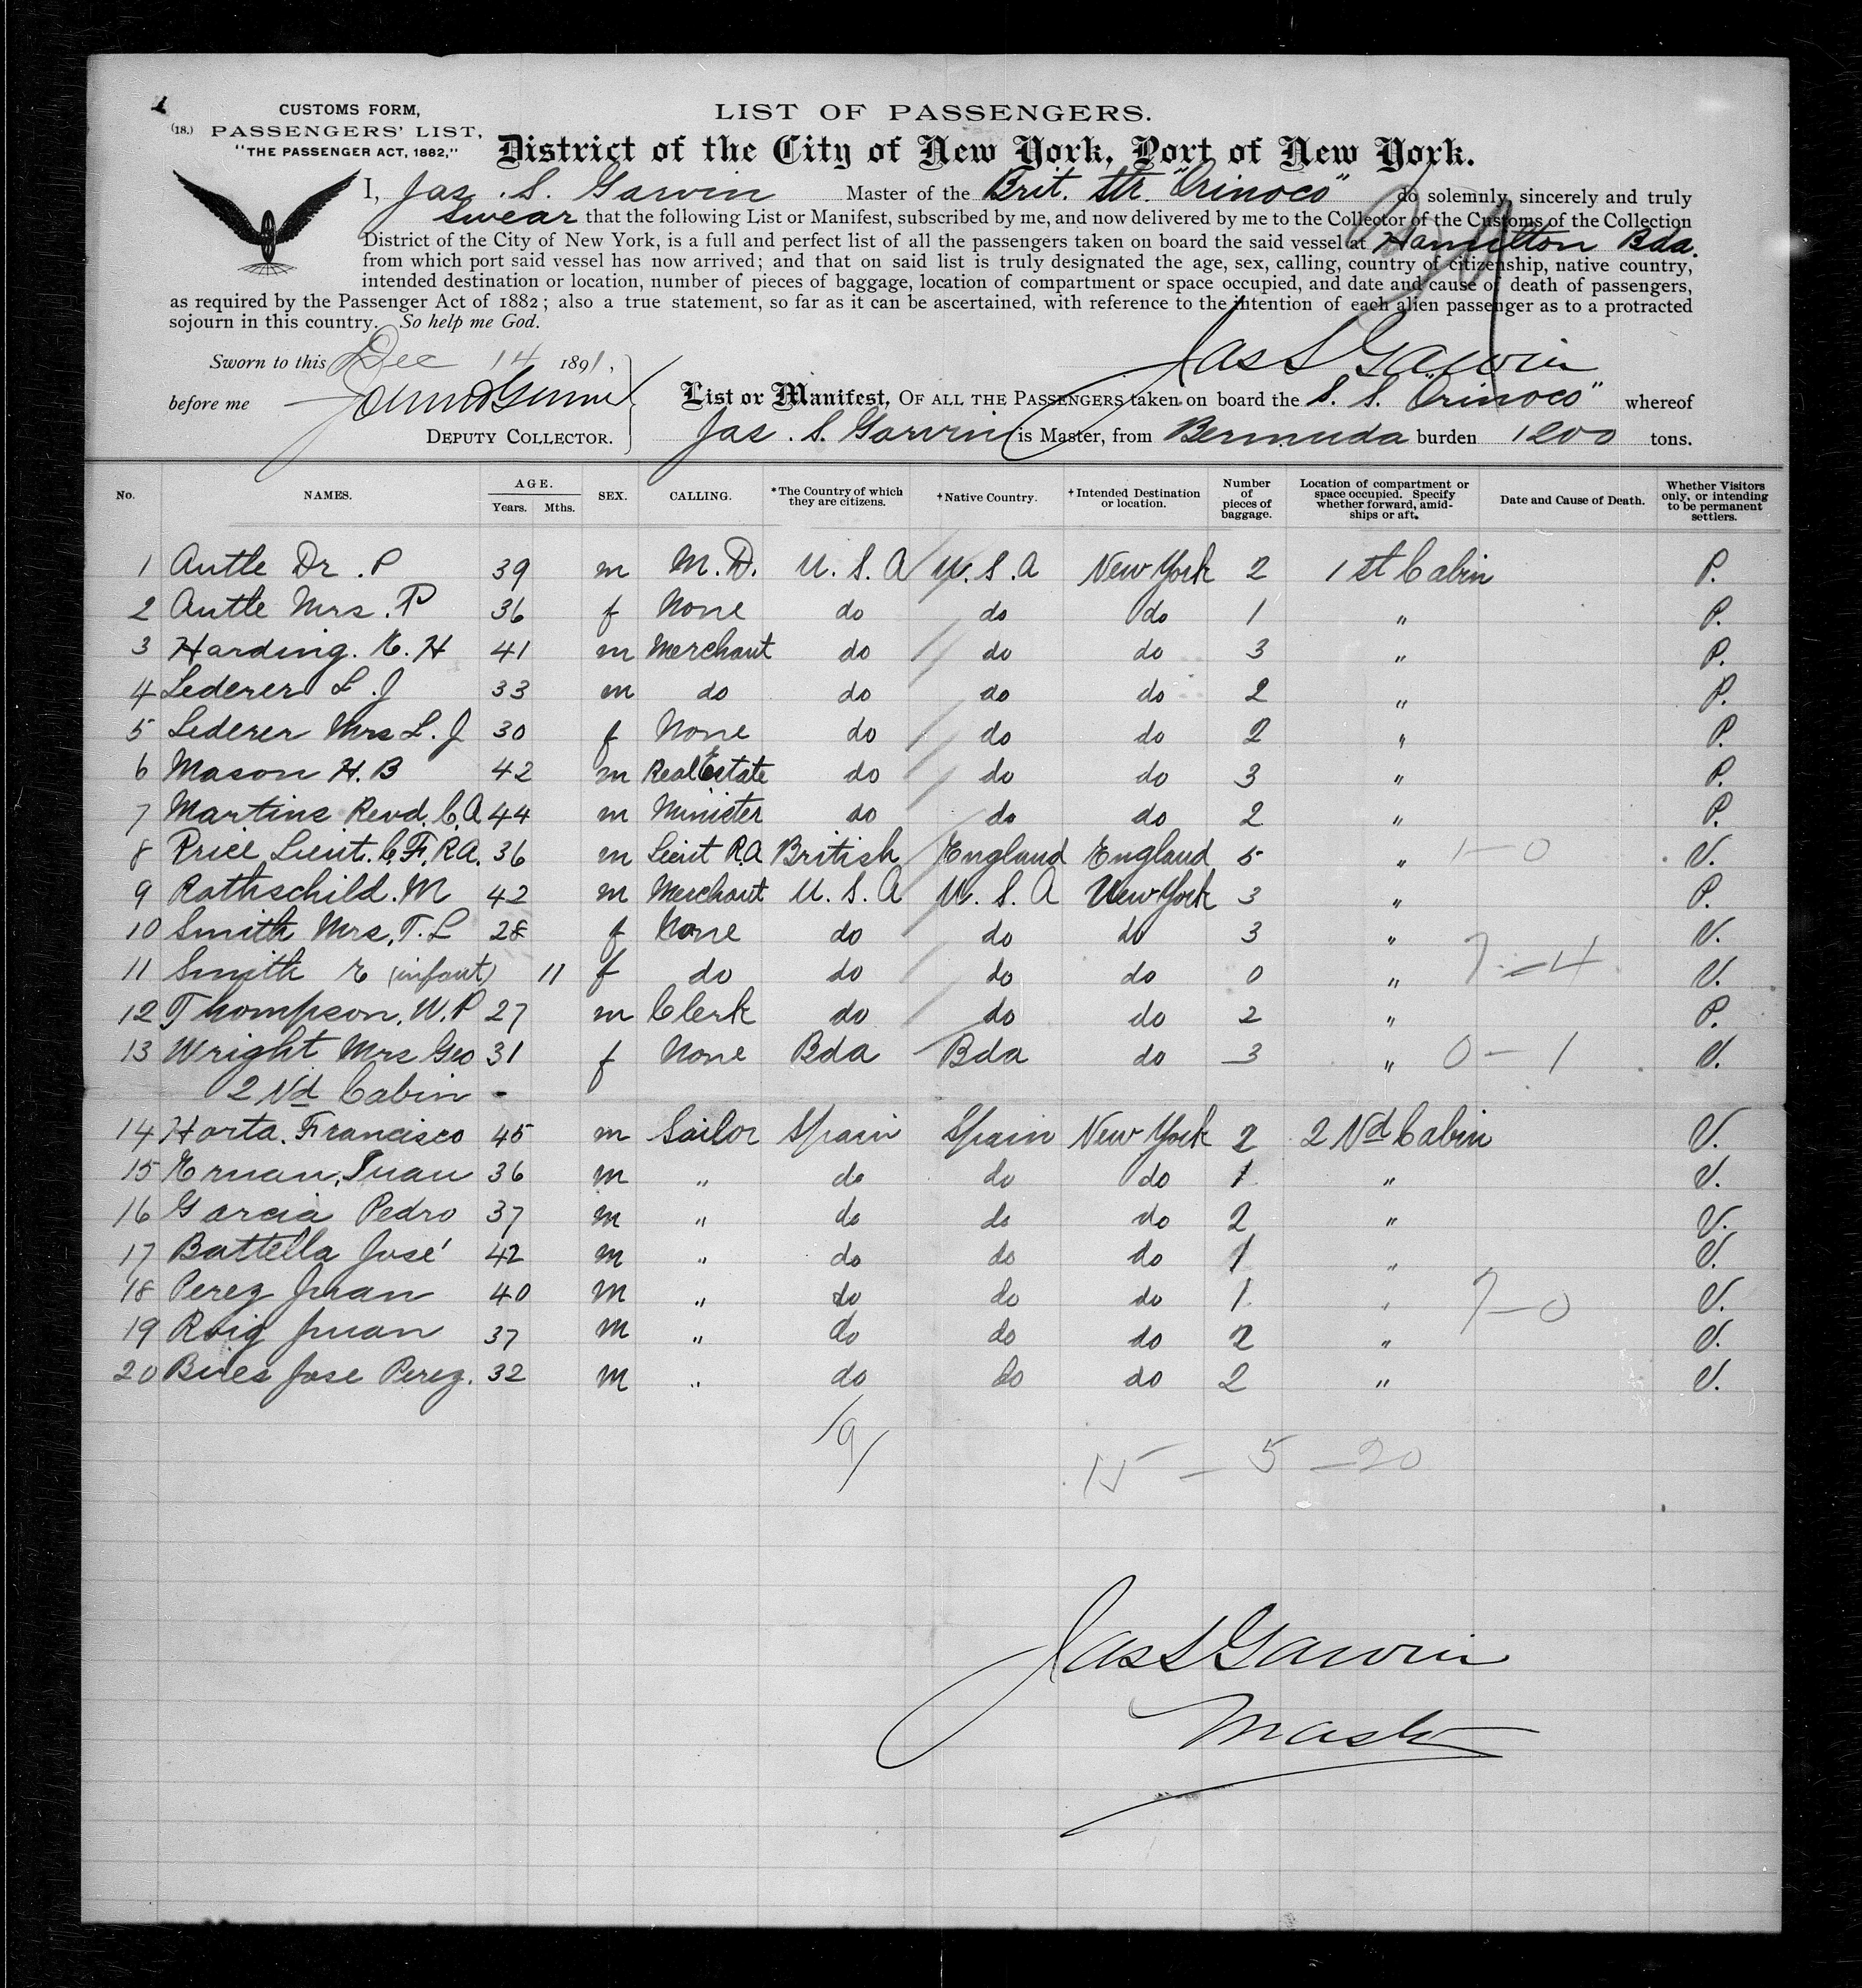 CUSTOMS FORM,
(18.) PASSENGERS' LIST,
"THE PASSENGER ACT, 1882,"
LIST OF PASSENGERS.
District of the City of New York, Port of New York.
I, Jas. S. Garvin Master of the Brit. Str. "Orinoco" do solemnly, sincerely and truly
swear that the following List or Manifest, subscribed by me, and now delivered by me to the Collector of the Customs of the Collection
District of the City of New York, is a full and perfect list of all the passengers taken on board the said vessel at Hamilton Bda.
from which port said vessel has now arrived; and that on said list is truly designated the age, sex, calling, country of citizenship, native country,
intended destination or location, number of pieces of baggage, location of compartment or space occupied, and date and cause of death of passengers,
as required by the Passenger Act of 1882; also a true statement, so far as it can be ascertained, with reference to the intention of each alien passenger as to a protracted
sojourn in this country. So help me God.
Sworn to this Dec 14 1891,
Jas S Garvin
before me
DEPUTY COLLECTOR.
List or Manifest, OF ALL THE PASSENGERS taken on board the S. S. "Orinoco" whereof
Jas. S. Garvin is Master, from Bermuda burden 1200 tons.
No. NAMES. AGE. Years. Mths. SEX. CALLING. *The Country of which they are citizens. †Native Country. †Intended Destination or location. Number of pieces of baggage. Location of compartment or space occupied. Specify whether forward, amidships or aft. Date and Cause of Death. Whether Visitors only, or intending to be permanent settlers.
1 Antle Dr. P 39 m M.D. U.S.A U.S.A New York 2 1st Cabin P.
2 Antle Mrs. P 36 f None do do do 1 " P.
3 Harding. E. H 41 m Merchant do do do 3 " P.
4 Lederer L. J 33 m do do do do 2 " P.
5 Lederer Mrs L. J 30 f None do do do 2 " P.
6 Mason H. B 42 m Real Estate do do do 3 " P.
7 Martine Revd. C. A 44 m Minister do do do 2 " P.
8 Price Lieut. C. F. R.A. 36 m Lieut R.A British England England 5 " 1-0 V.
9 Rothschild. M 42 m Merchant U.S.A U.S.A New York 3 " P.
10 Smith Mrs. T. L 28 f None do do do 3 " V.
11 Smith E (infant) 11 f do do do do 0 " 7-4 V.
12 Thompson. W. P 27 m Clerk do do do 2 " P.
13 Wright Mrs Geo 31 f None Bda Bda do 3 " 0-1 V.
2Nd Cabin -
14 Horta. Francisco 45 m Sailor Spain Spain New York 2 2Nd Cabin V.
15 Ernan, Juan 36 m " do do do 1 " V.
16 Garcia Pedro 37 m " do do do 2 " V.
17 Battella José 42 m " do do do 1 " V.
18 Perez Juan 40 m " do do do 1 " 7-0 V.
19 Roig Juan 37 m " do do do 2 " V.
20 Bires Jose Perez. 32 m " do do do 2 " V.
/9/
15 - 5 - 20
Jas S Garvin
Master